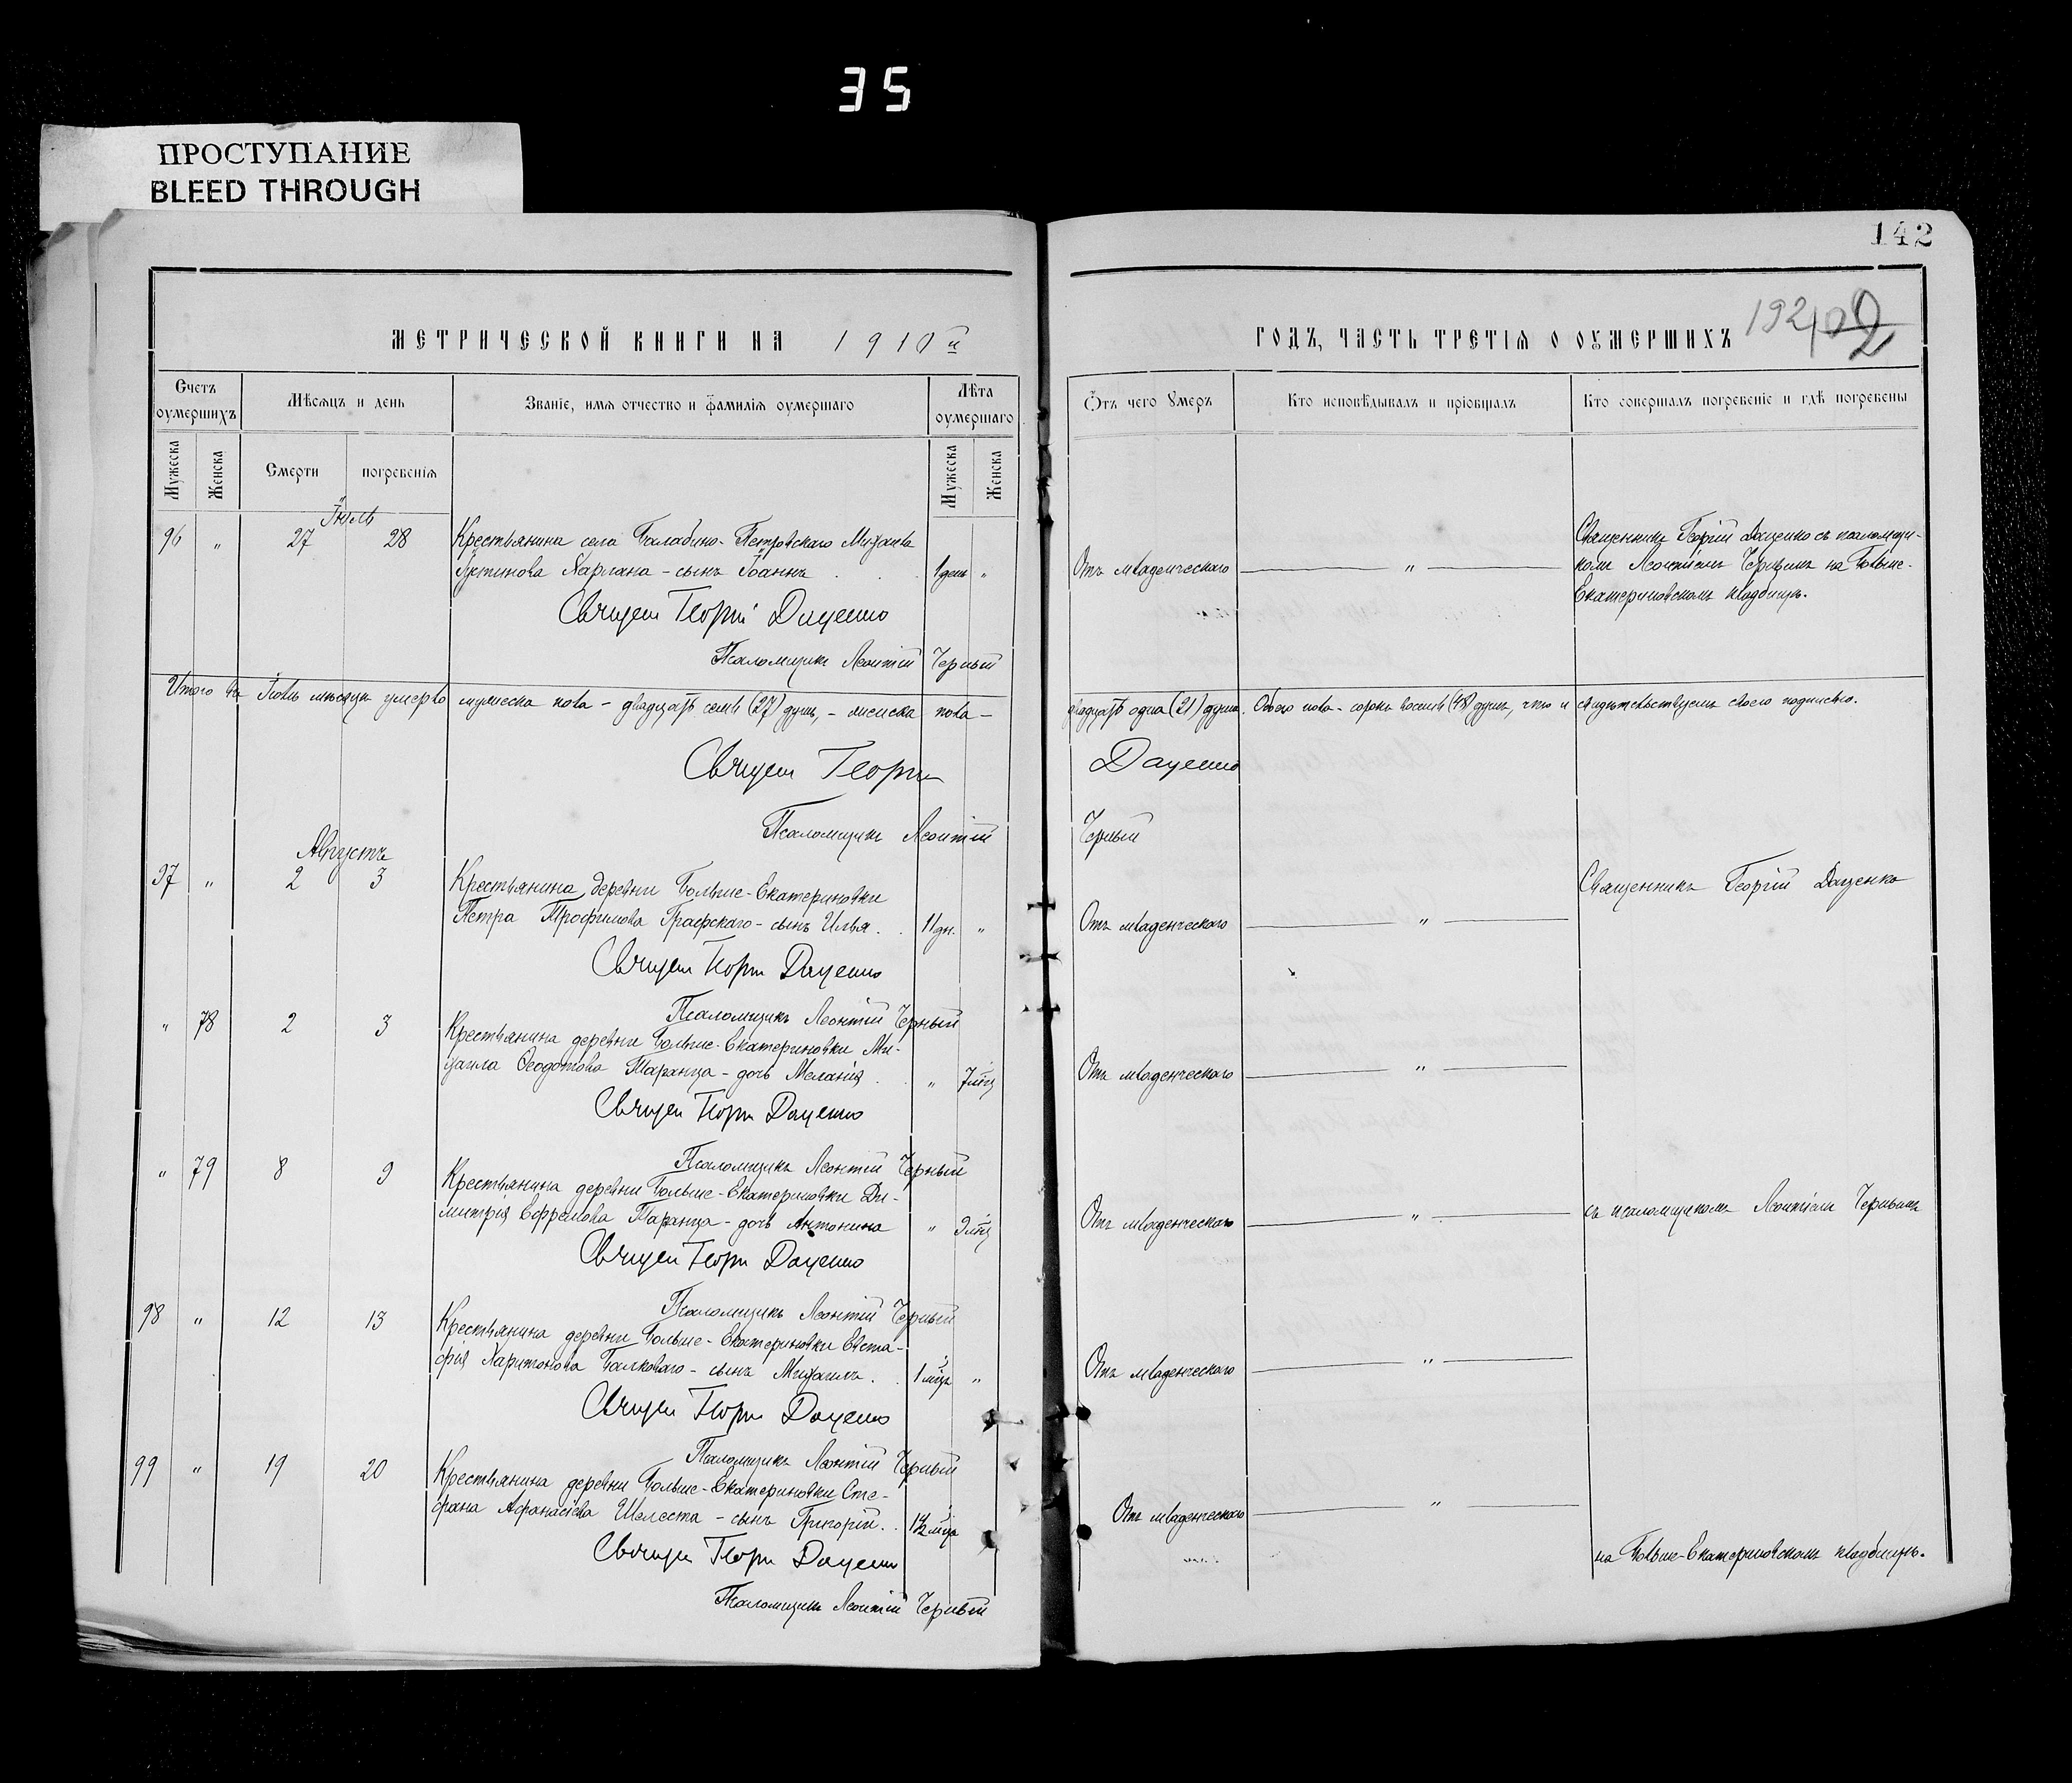 35
ПРОСТУПАНИЕ
BLEED THROUGH
142
МЕТРИЧЕСКОЙ КНИГИ НА 1910й
ГОДЪ, ЧАСТЬ ТРЕТІЯ О ОУМЕРШИХЪ
192
Счетъ оумершихъ
Мѣсяцъ и день
Званіе, имя отчество и фамилія оумершаго
Лѣта оумершаго
Отъ чего Умеръ
Кто исповѣдывалъ и пріобщалъ
Кто совершалъ погребеніе и гдѣ погребены
Мужеска
Женска
Смерти
погребенія
Мужеска
Женска
Іюль
96 " 27 28 Крестьянина села Балабино-Петровскаго Михаила
Устинова Харлана - сынъ Іоаннъ . . . 1 день "
Отъ младенческаго "
Священникъ Георгій Даценко съ псаломщи-
комъ Леонтіемъ Чернымъ на Больше-
Екатериновскомъ кладбищѣ.
Священ Георгій Даценко
Псаломщикъ Леонтій Черный
Итого въ Іюлѣ мѣсяцѣ умерло мужеска пола - двадцать семь (27) душъ, - женска пола -
двадцать одна (21) душа. Обоего пола - сорокъ восемь (48) душъ, что и свидѣтельствуемъ своею подписью.
Священ Георгій Даценко
Псаломщикъ Леонтій Черный
Августъ
97 " 2 3 Крестьянина деревни Больше-Екатериновки
Петра Трофимова Графскаго - сынъ Илья . . 11 дн. "
Отъ младенческаго "
Священникъ Георгій Даценко
Священ Георгій Даценко
Псаломщикъ Леонтій Черный
" 78 2 3 Крестьянина деревни Больше-Екатериновки Ми-
хаила Ѳеодотова Таранца - дочь Меланія . " 7 мѣц
Отъ младенческаго "
Священ Георгій Даценко
Псаломщикъ Леонтій Черный
" 79 8 9 Крестьянина деревни Больше-Екатериновки Ди-
митрія Ефремова Таранца - дочь Антонина " 9 мѣц
Отъ младенческаго "
съ псаломщикомъ Леонтіемъ Чернымъ
Священ Георгій Даценко
Псаломщикъ Леонтій Черный
98 " 12 13 Крестьянина деревни Больше-Екатериновки Евста-
фія Харитонова Балковаго - сынъ Михаилъ . . 1 мѣцъ "
Отъ младенческаго "
Священ Георгій Даценко
Псаломщикъ Леонтій Черный
99 " 19 20 Крестьянина деревни Больше-Екатериновки Сте-
фана Афанасіева Шелеста - сынъ Григорій . . 1½ мѣца
Отъ младенческаго "
на Больше-Екатериновскомъ кладбищѣ.
Священ Георгій Даценко
Псаломщикъ Леонтій Черный